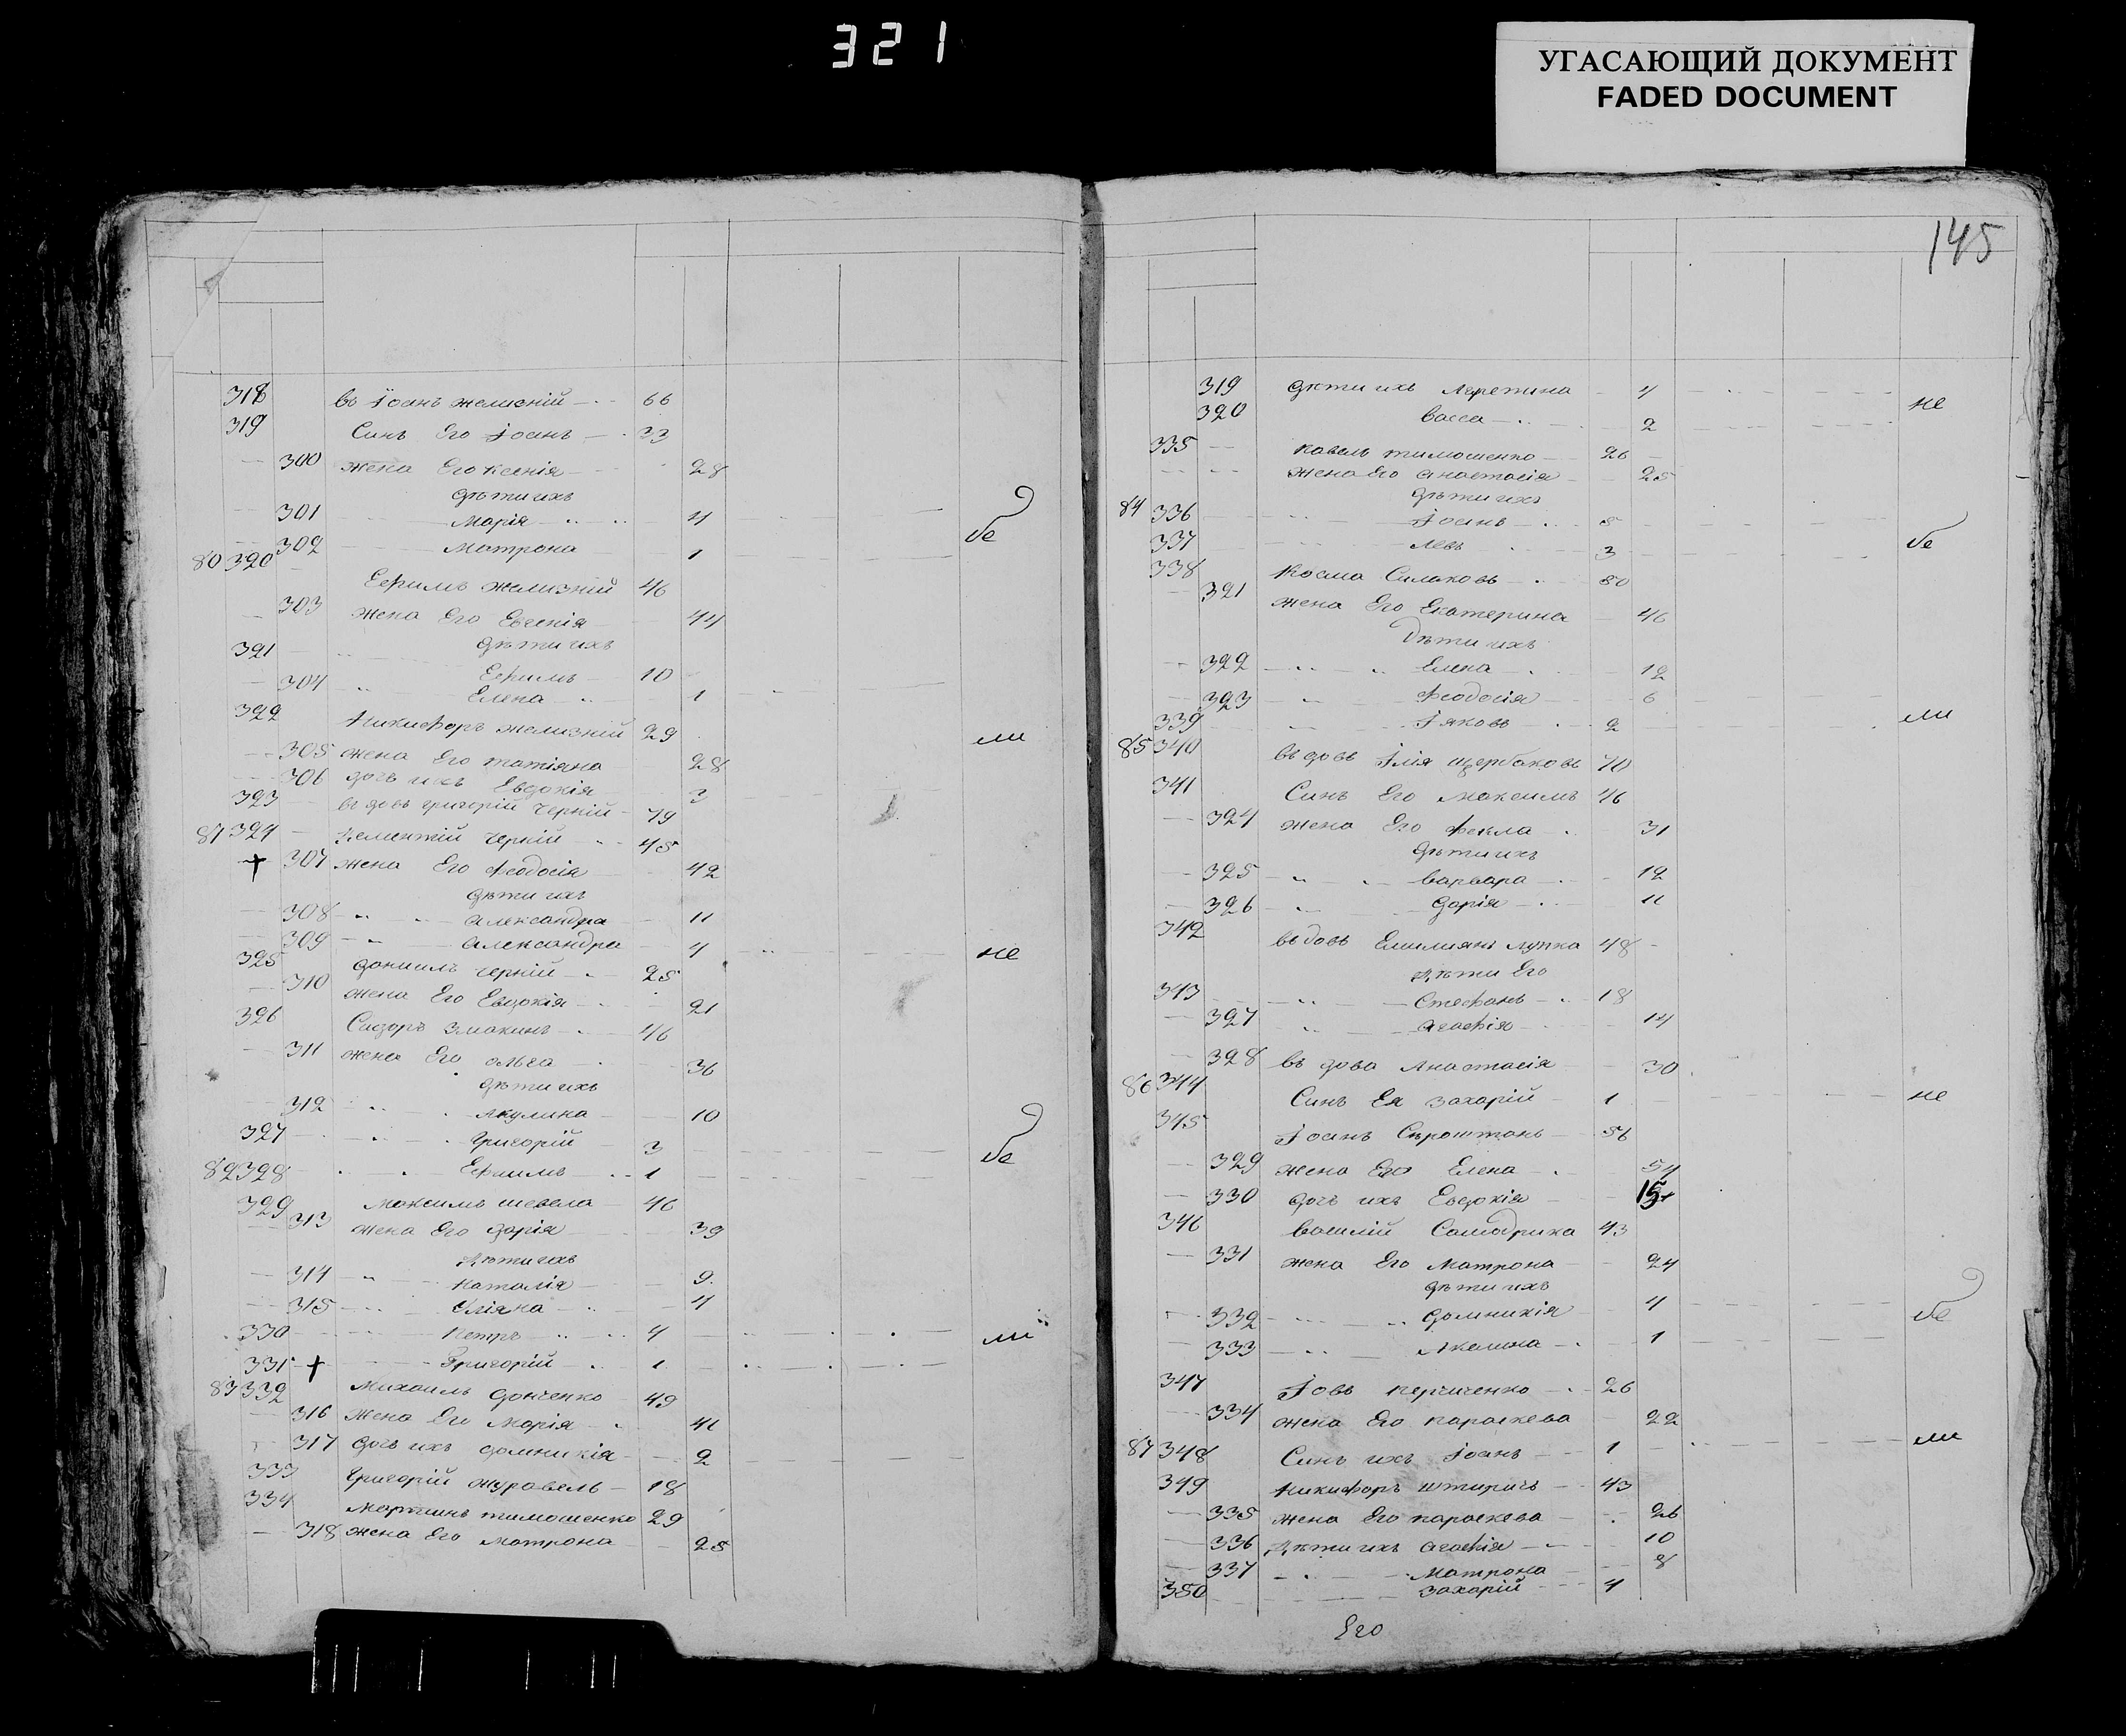 321
УГАСАЮЩИЙ ДОКУМЕНТ
FADED DOCUMENT
318 въ Іоанъ Желизній 66
319 Синъ Его Іоанъ 33
300 жена Его Ксенія 28
дѣти ихъ
301 Марія 4
302 Матрона 1 бе
80 320 Ефимъ Желизній 46
303 жена Его Евгенія 44
дѣти ихъ
321 Ефимъ 10
304 Елена 1
322 Никифоръ Желизній 29 ли
305 жена Его Татіяна 28
306 дочь ихъ Евдокія 3
323 вдовъ Григорій Черній 79
81 324 Дементій Черній 45
307 жена Его Феодосія 42
дѣти ихъ
308 Александра 11
309 Александра 4 не
325 Даниилъ Черній 25
310 жена Его Евдокія 21
326 Сидоръ 46
311 жена Его Ольга 36
дѣти ихъ
312 Акулина 10
327 Григорій 3 бе
82 328 Ефимъ 1
329 Максимъ Шевела 46
313 жена Его Дарія 39
Дѣти ихъ
314 Наталія 9
315 Уліяна 4
330 Петръ 4 ли
331 Григорій 1
83 332 Михаилъ Донченко 49
316 жена Его Марія 41
317 дочь ихъ Домникія 2
333 Григорій Журавель 18
334 Мартинъ Тимошенко 29
318 жена Его Матрона 25
145
319 дѣти ихъ 4 не
320 Васса 2
335 Павелъ Тимошенко 26
жена Его Анастасія 25
дѣти ихъ
84 336 Іоанъ 5
337 Левъ 3 бе
338 Косма Симаковъ 50
321 жена Его Екатерина 46
Дѣти ихъ
322 Елена 12
323 Феодосія 6
339 Іяковъ 2 ли
85 340 вдовъ Ілія Щербаковъ 70
341 Синъ Его Максимъ 46
324 жена Его Фекла 31
дѣти ихъ
325 Варвара 12
326 Дарія 11
342 вдовъ Емилиянъ Лупка 48
Дѣти Его
343 Стефанъ 18
327 Агафія 14
328 вдова Анастасія 30
86 344 Синъ Ея Захарій 1 не
345 Іоанъ Сѣроштанъ 56
329 жена Его Елена 54
330 дочь ихъ Евдокія 15
346 Василій Самодрика 43
331 жена Его Матрона 24
дѣти ихъ
332 Домникія 4 бе
333 Акелина 1
347 Іовъ 26
334 жена Его Параскева 22
87 348 Синъ ихъ Іоанъ 1 ли
349 Никифоръ 43
335 жена Его Параскева 26
336 Дѣти ихъ Агафія 10
337 Матрона 8
350 Захарій 4
Его